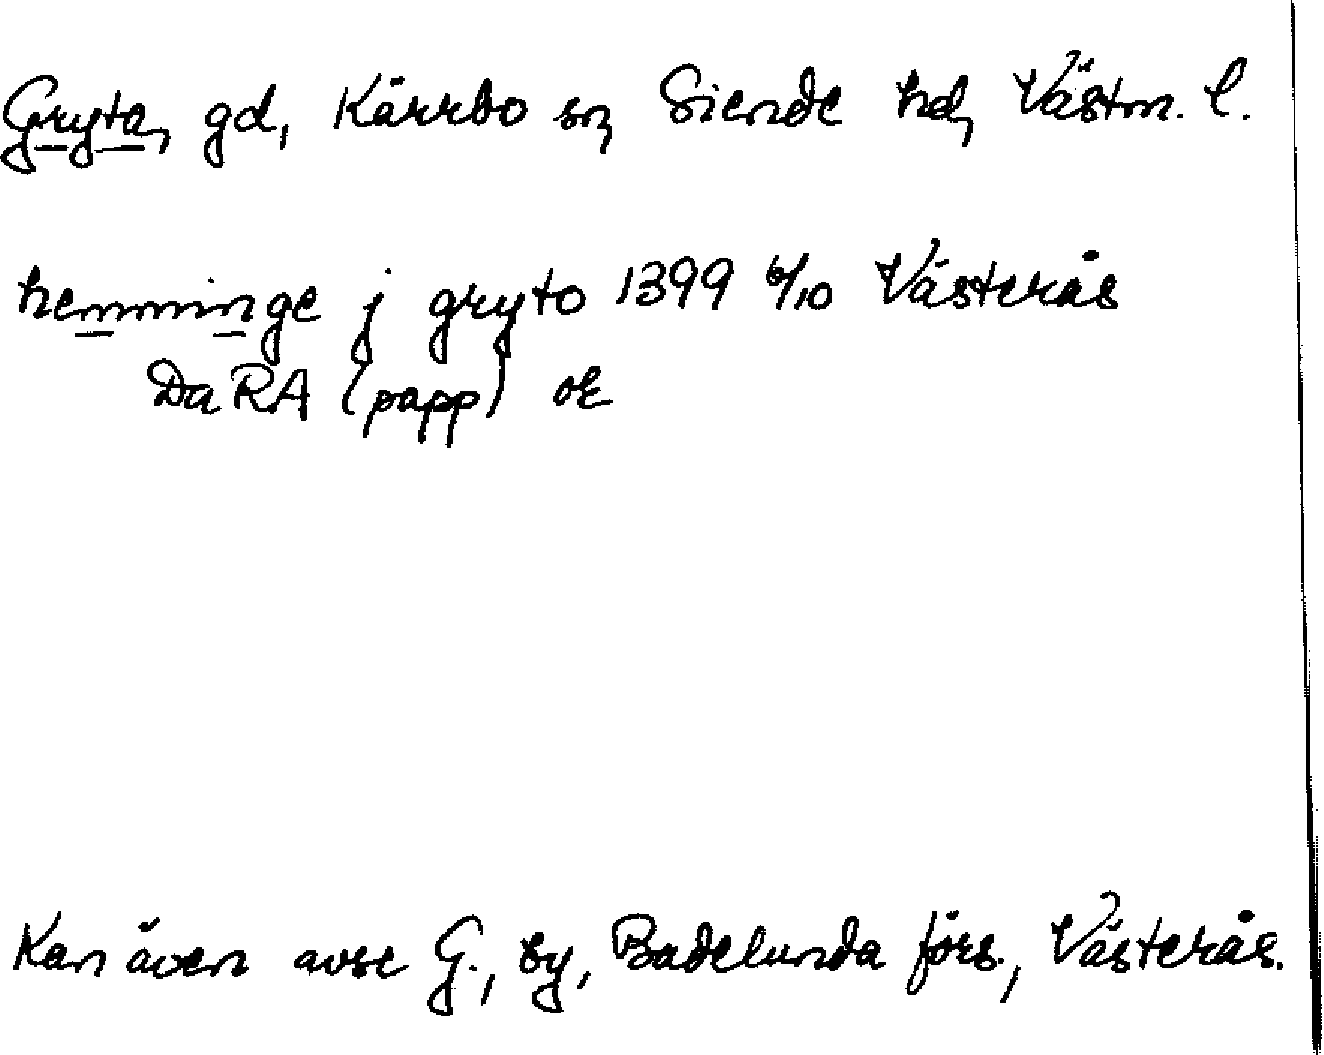 Gryta, gd, Kärrbo sn, Siende hd, Västm. l.
hemminge j gryto 1399 6/10 Västerås
DaRA (papp) or
Kan även avse G., by, Badelunda förs., Västerås.